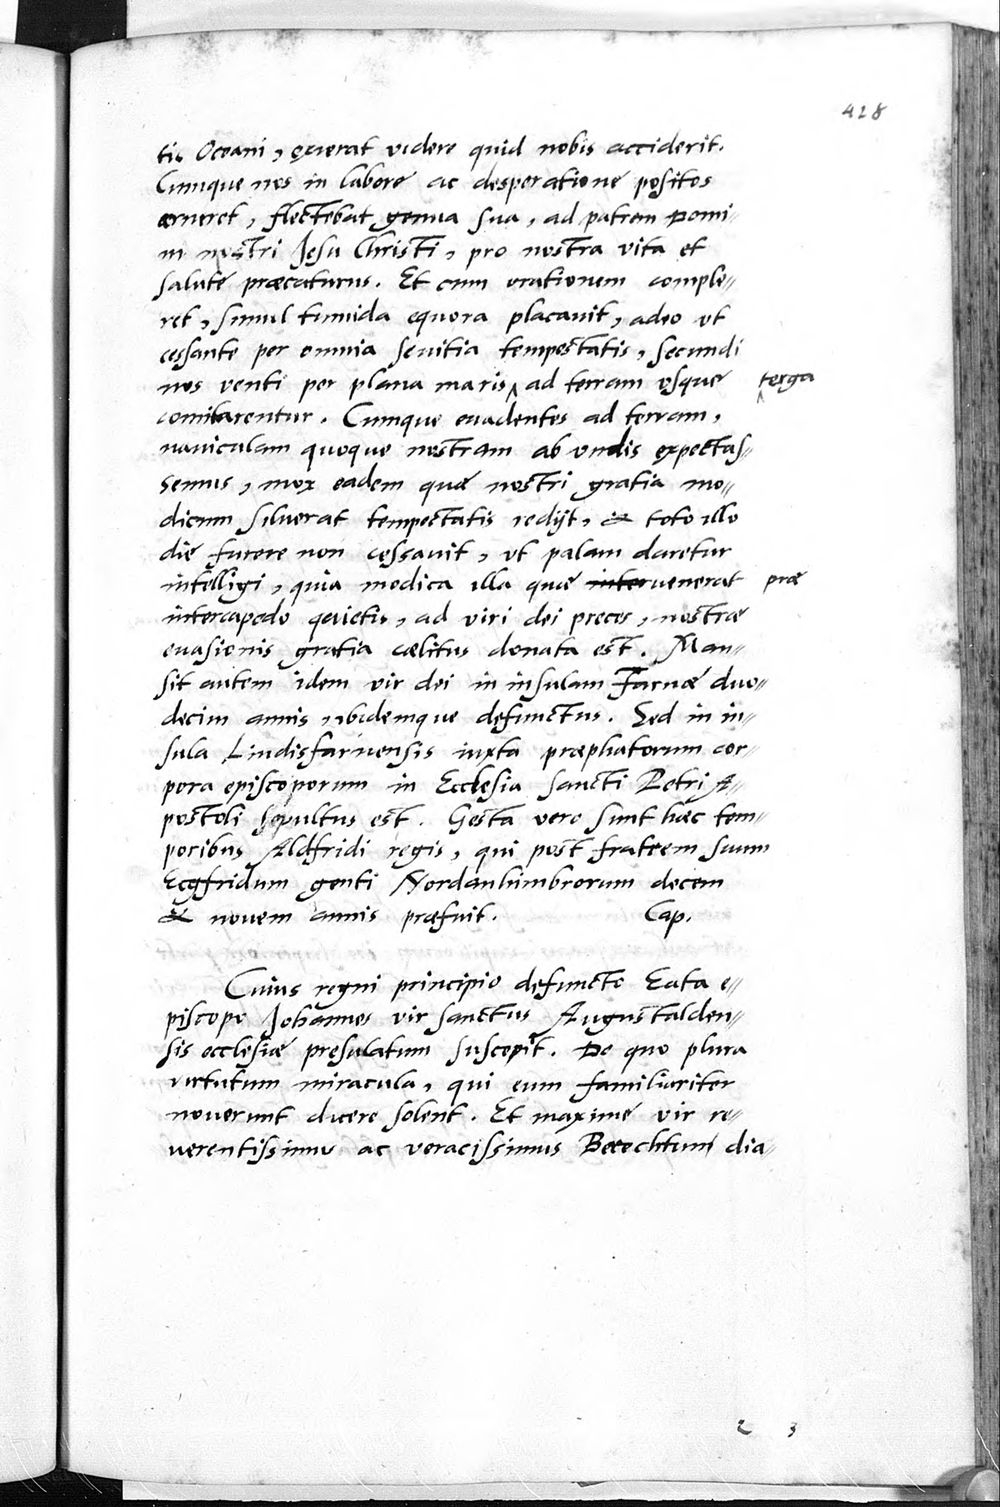 428
tis Oceani, exierat videre quid nobis acciderit.
Cumque nos in labore ac desperatione positos
cerneret, flectebat genua sua, ad patrem Domi=
ni nostri Jesu Christi, pro nostra vita et
salute præcaturus. Et cum orationem comple=
ret, simul tumida equora placauit, adeo vt
cessante per omnia seuitia tempestatis, secundi
nos venti per plana maris ‸ ad terram vsque terga
comitarentur. Cumque euadentes ad terram,
nauiculam quoque nostram ab vndis expectas=
semus, mox eadem quæ nostri gratia mo=
dicum siluerat tempestatis redijt, & toto illo
die furere non cessauit, vt palam daretur
intelligi, quia modica illa quæ interuenerat præ
intercapedo quietis, ad viri dei preces, nostræ
euasionis gratia cælitus donata est. Man=
sit autem idem vir dei in insulam Farnæ duo=
decim annis, ibidemque defunctus. Sed in in=
sula Lindisfarnensis iuxta præphatorum cor=
pora episcoporum in Ecclesia sancti Petri A=
postoli sepultus est. Gesta vero sunt hæc tem=
poribus Aldfridi regis, qui post fratrem suum
Ecgfridum genti Nordanhimbrorum decem
& nouem annis præfuit. Cap.
Cuius regni principio defuncto Eata e=
piscopo Johannes vir sanctus Augustalden=
sis ecclesiæ presulatum suscepit. De quo plura
virtutum miracula, qui eum familiariter
nouerunt dicere solent. Et maxime vir re=
uerentissimus ac veracissimus Berechtum dia=
2 3